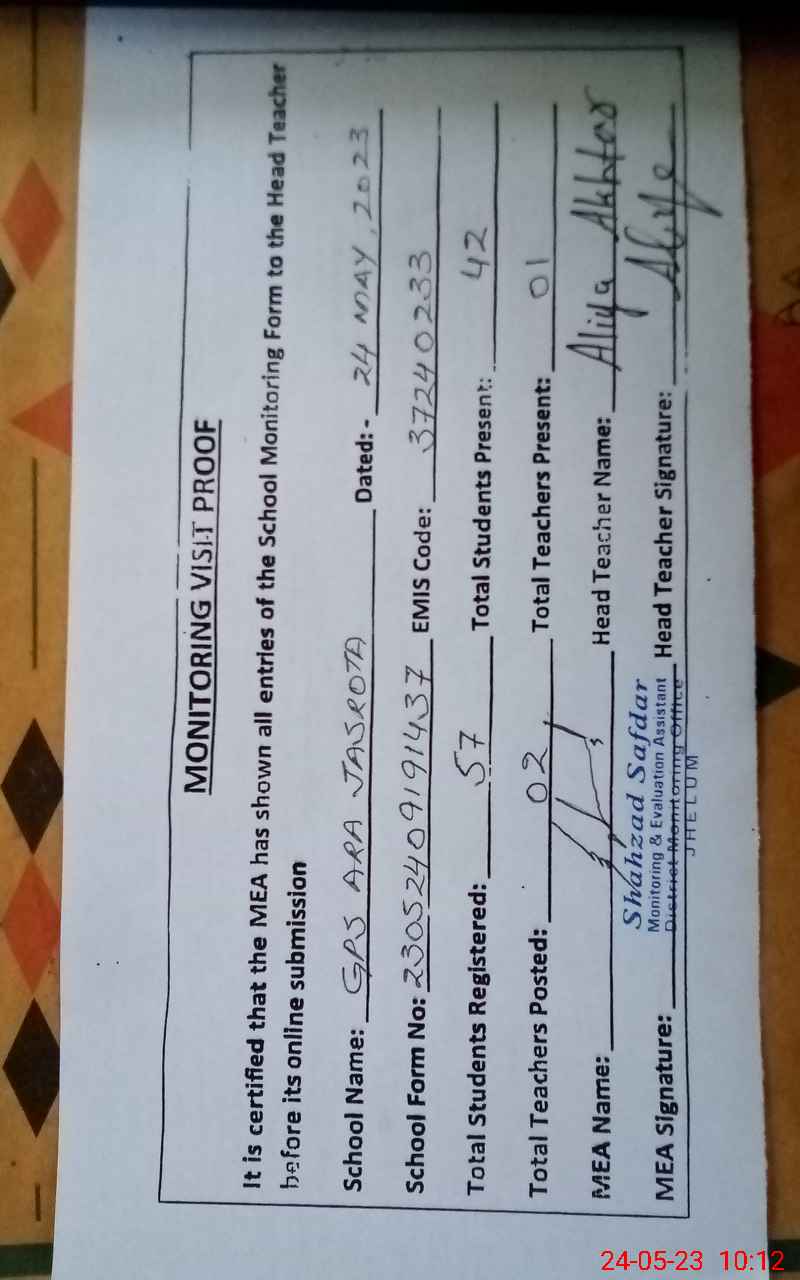 MONITORING VISIT PROOF
It is certified that the MEA has shown all entries of the School Monitoring Form to the Head Teacher
before its online submission
School Name: GPS ARA JASROTA Dated: - 24 MAY, 2023
School Form No: 23052409191437 EMIS Code: 37240233
Total Students Registered: 57 Total Students Present: 42
Total Teachers Posted: 02 Total Teachers Present: 01
MEA Name: Head Teacher Name: Aliya Akhtar
Shahzad Safdar
Monitoring & Evaluation Assistant
District Monitoring Office
JHELUM
MEA Signature: Head Teacher Signature:
24-05-23 10:12